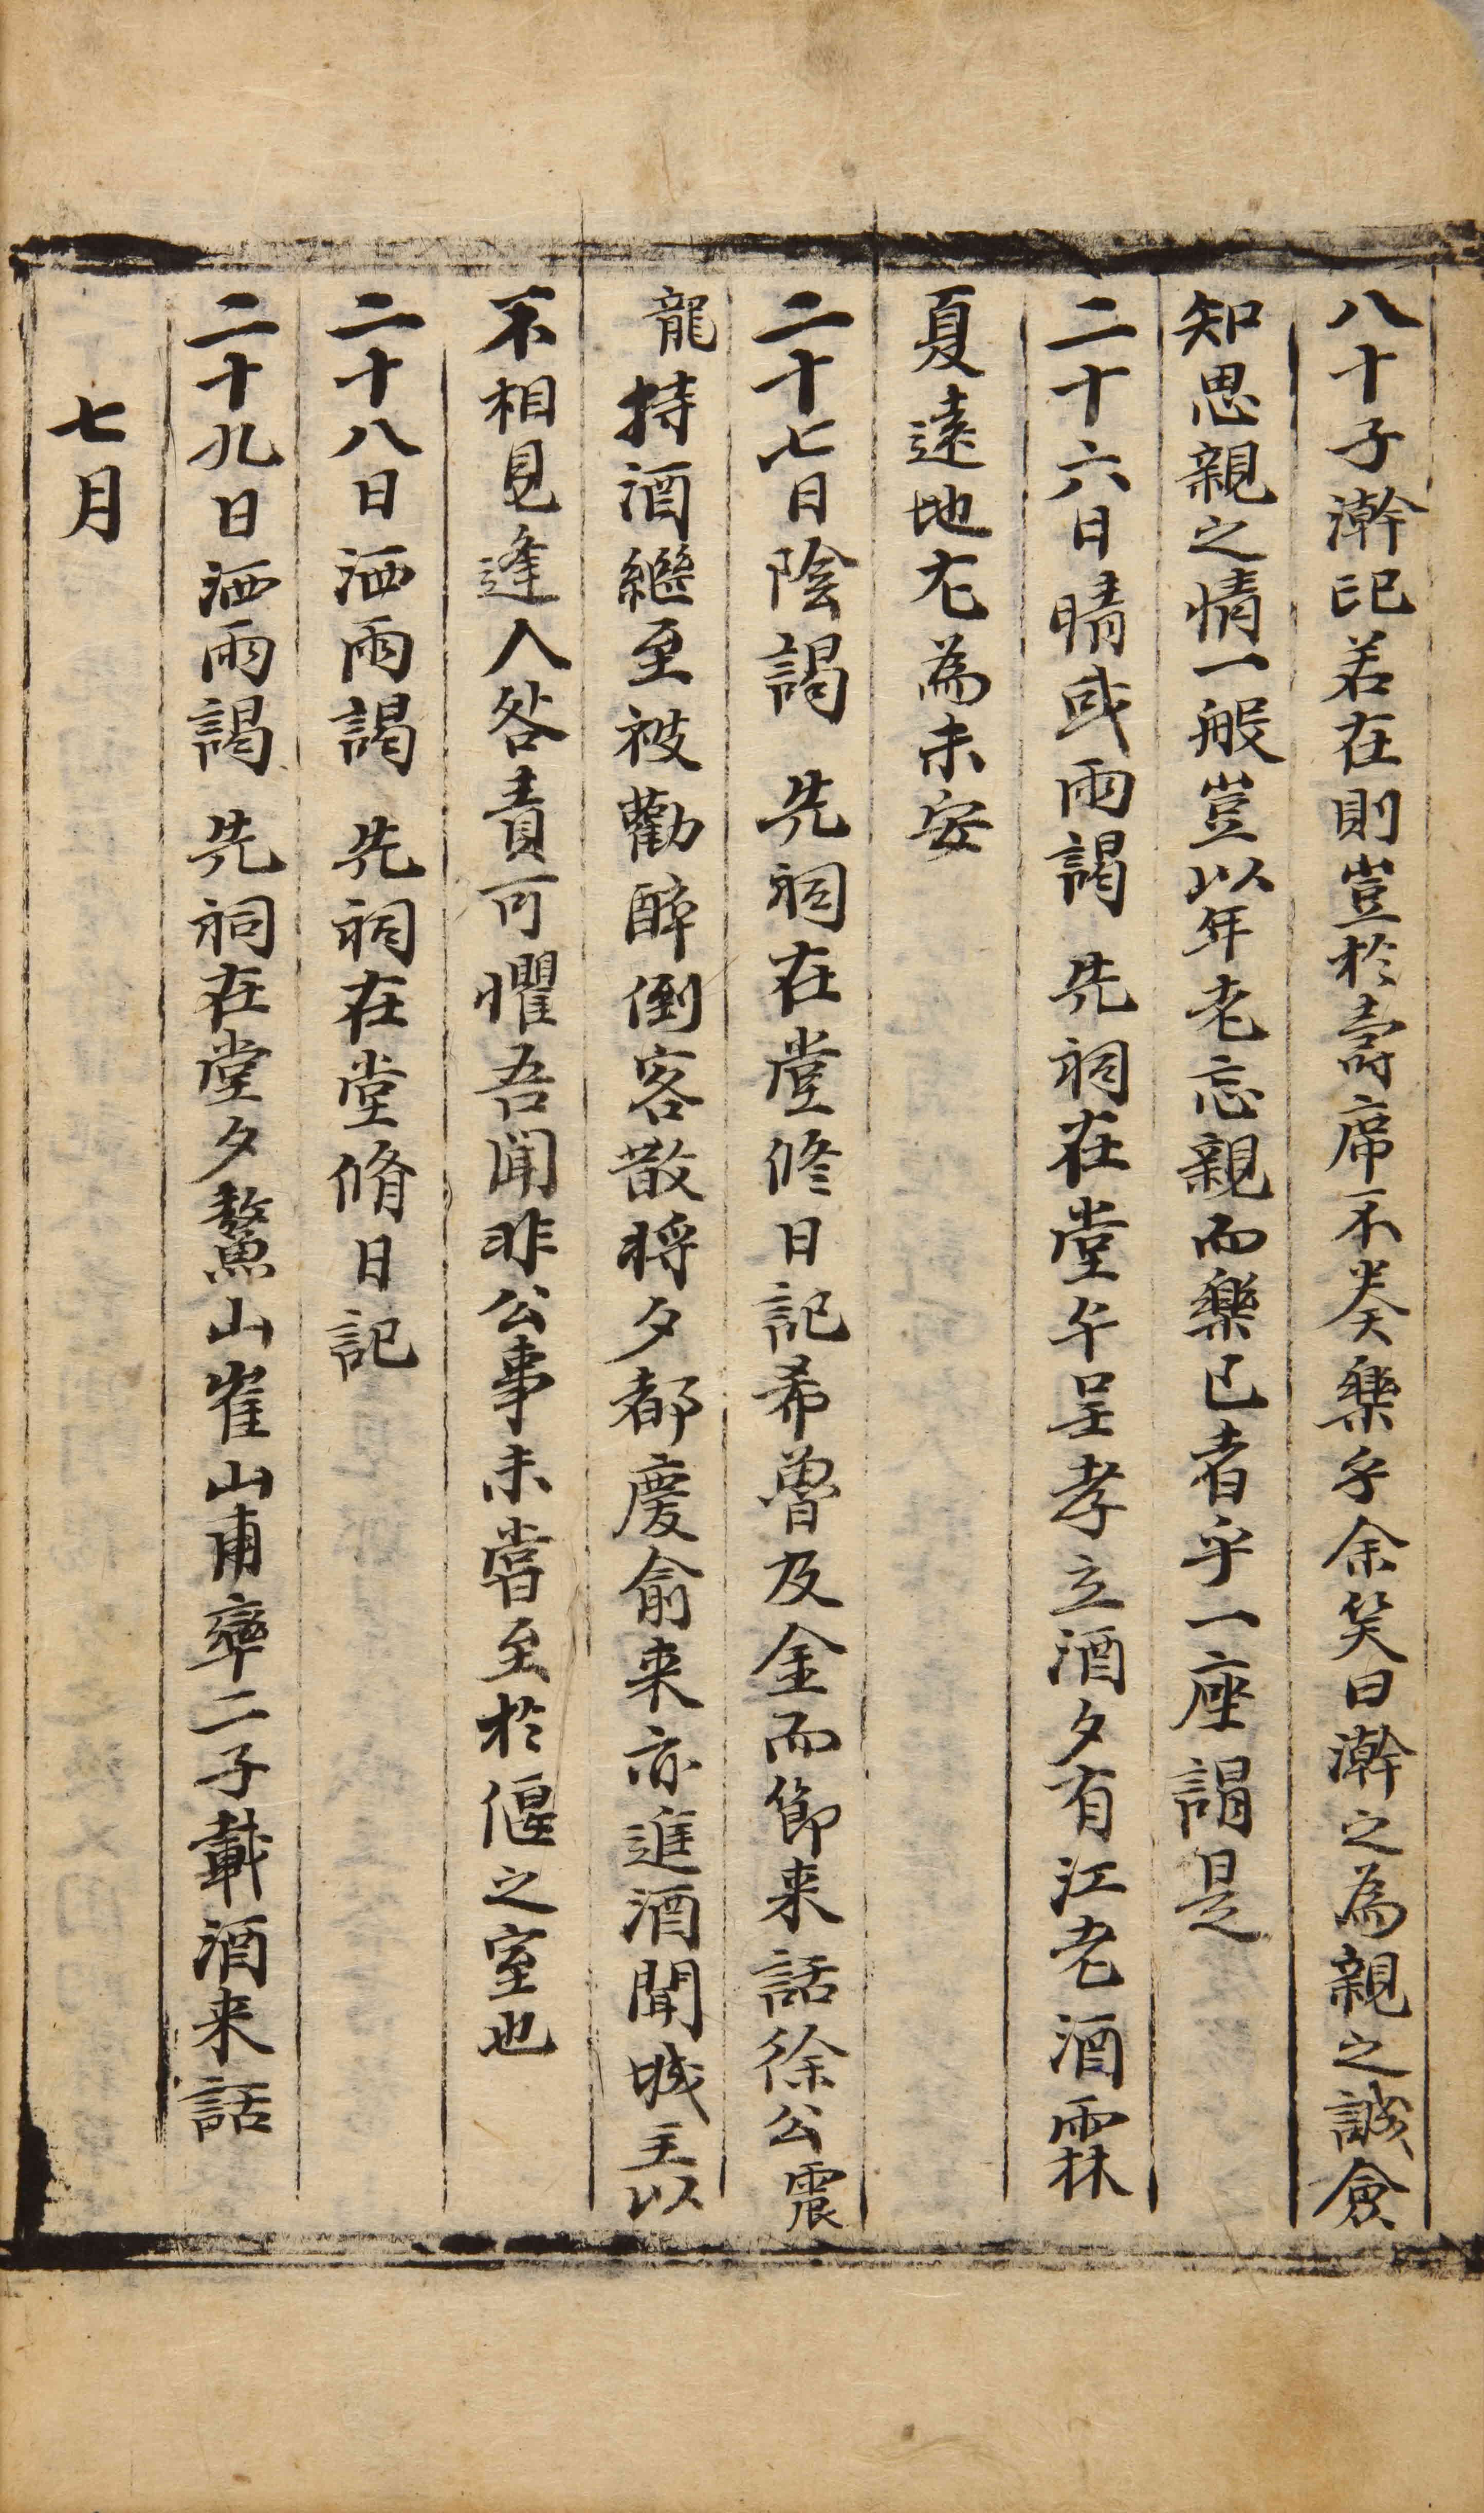 八十子澣記若在則豈於壽席不奏樂乎余笑曰澣之為親之誠僉
知思親之情一般豈以年老忘親而樂已者乎一座謂是
二十六日晴或雨謁 先祠在堂午呈孝立酒夕有江老酒霖
夏遠地尤為未安
二十七日陰謁 先祠在堂修日記希魯及金而節来話徐公震
龍持酒繼至被勸醉倒客散将夕都慶俞来亦進酒聞城主以
不相見逢人咎責可懼吾聞非公事未嘗至於偃之室也
二十八日洒雨謁 先祠在堂脩日記
二十九日洒雨謁 先祠在堂夕鰲山崔山甫率二子載酒来話
七月